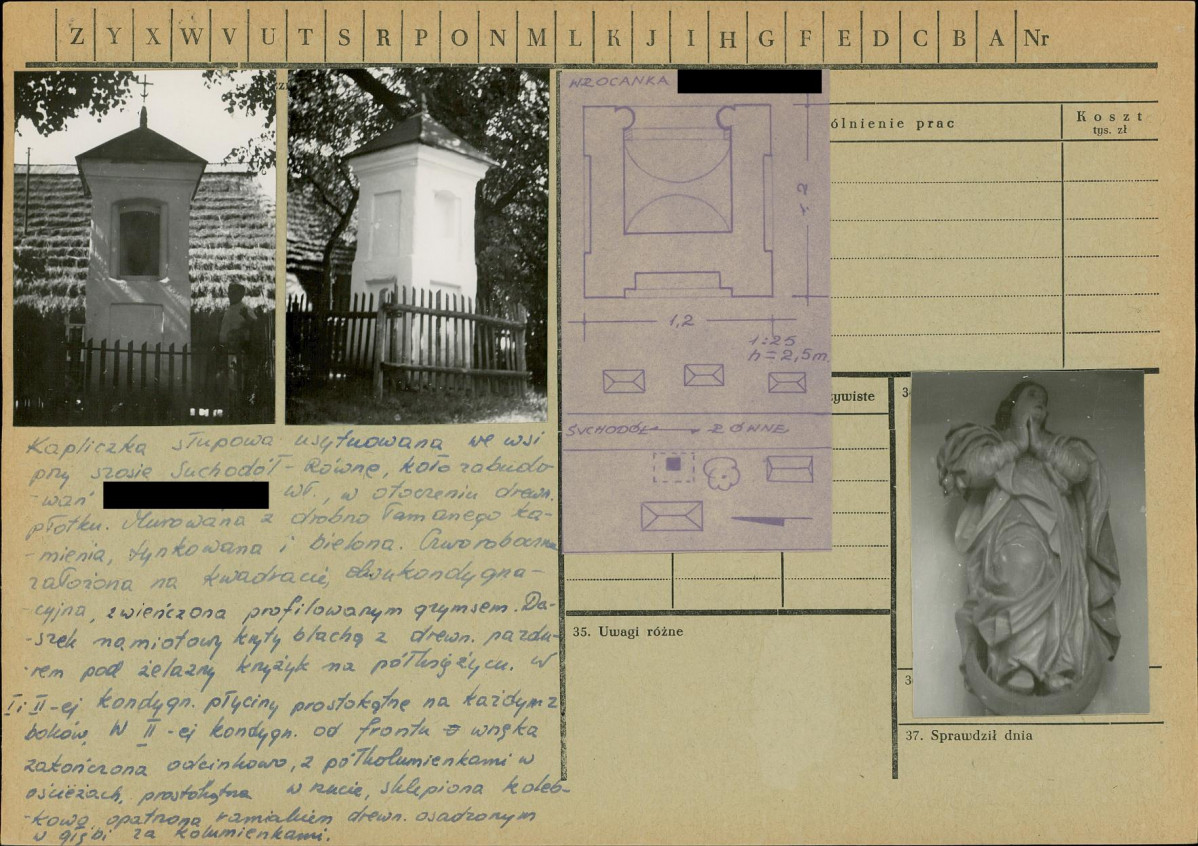 Z Y X W V U T S R P O N M L K J I H G F E D C B A Nr
WROCANKA
1,2
1,2
1:25
h=2,5m
SUCHODÓŁ RÓWNE
ólnienie prac
Koszt
tys. zł
zywiste
3
35. Uwagi różne
3
37. Sprawdził dnia
Kapliczka słupowa usytuowana we wsi
przy szosie Suchodół-Równe, koło zabudo-
-wań wł., w otoczeniu drewn.
płotku. Murowana z drobno łamanego ka-
-mienia, tynkowana i bielona. Czworoboczna
założona na kwadracie, dwukondygna-
-cyjna, zwieńczona profilowanym gzymsem. Da-
-szek namiotowy kryty blachą z drewn. pazdu-
-rem pod żelazny krzyżyk na półksiężycu. W
I i II-ej kondygn. płyciny prostokątne na każdym z
boków, W II-ej kondygn. od frontu wnęka
zakończona odcinkowo, z półkolumienkami w
ościeżach, prostokątna w rzucie, sklepiona koleb-
-kowo, opatrzona ramiakiem drewn. osadzonym
w głębi za kolumienkami.